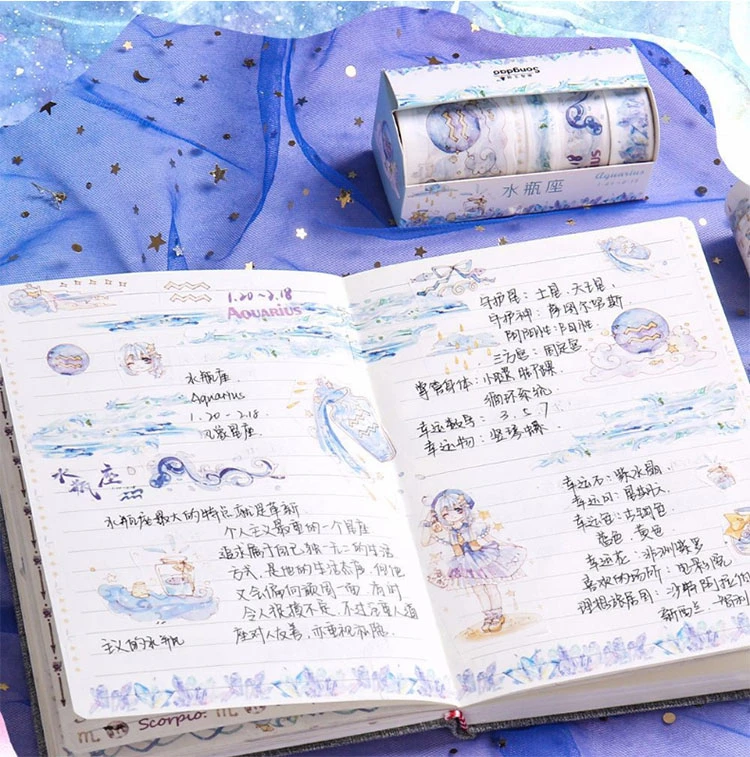 Songdao
水瓶座
Aquarius
1.20~2.18
AQUARIUS
水瓶座.
Aquarius
1.20~2.18
风象星座.
水瓶座:
水瓶座最大的特点就是革新
个人主义最重的一个星座
追求属于自己独一无二的生活
方式, 是他的生活态度, 但他
又会偏向顽固一面, 有的
令人很摸不定, 不过是人道
主义的水瓶
座对人友善, 亦重视
守护星: 土星. 天王星.
守护神:
阴阳性: 阳性
三方宫: 固定宫.
掌管身体: 小腿.
循环系统
幸运数字: 3. 5. 7
幸运物:
幸运石: 紫水晶
幸运日: 星期六
幸运色: 古铜色
蓝色 黄色
幸运花:
喜欢的场所: 电影院
理想旅居国: 沙特阿拉伯
新西兰
Scorpio.